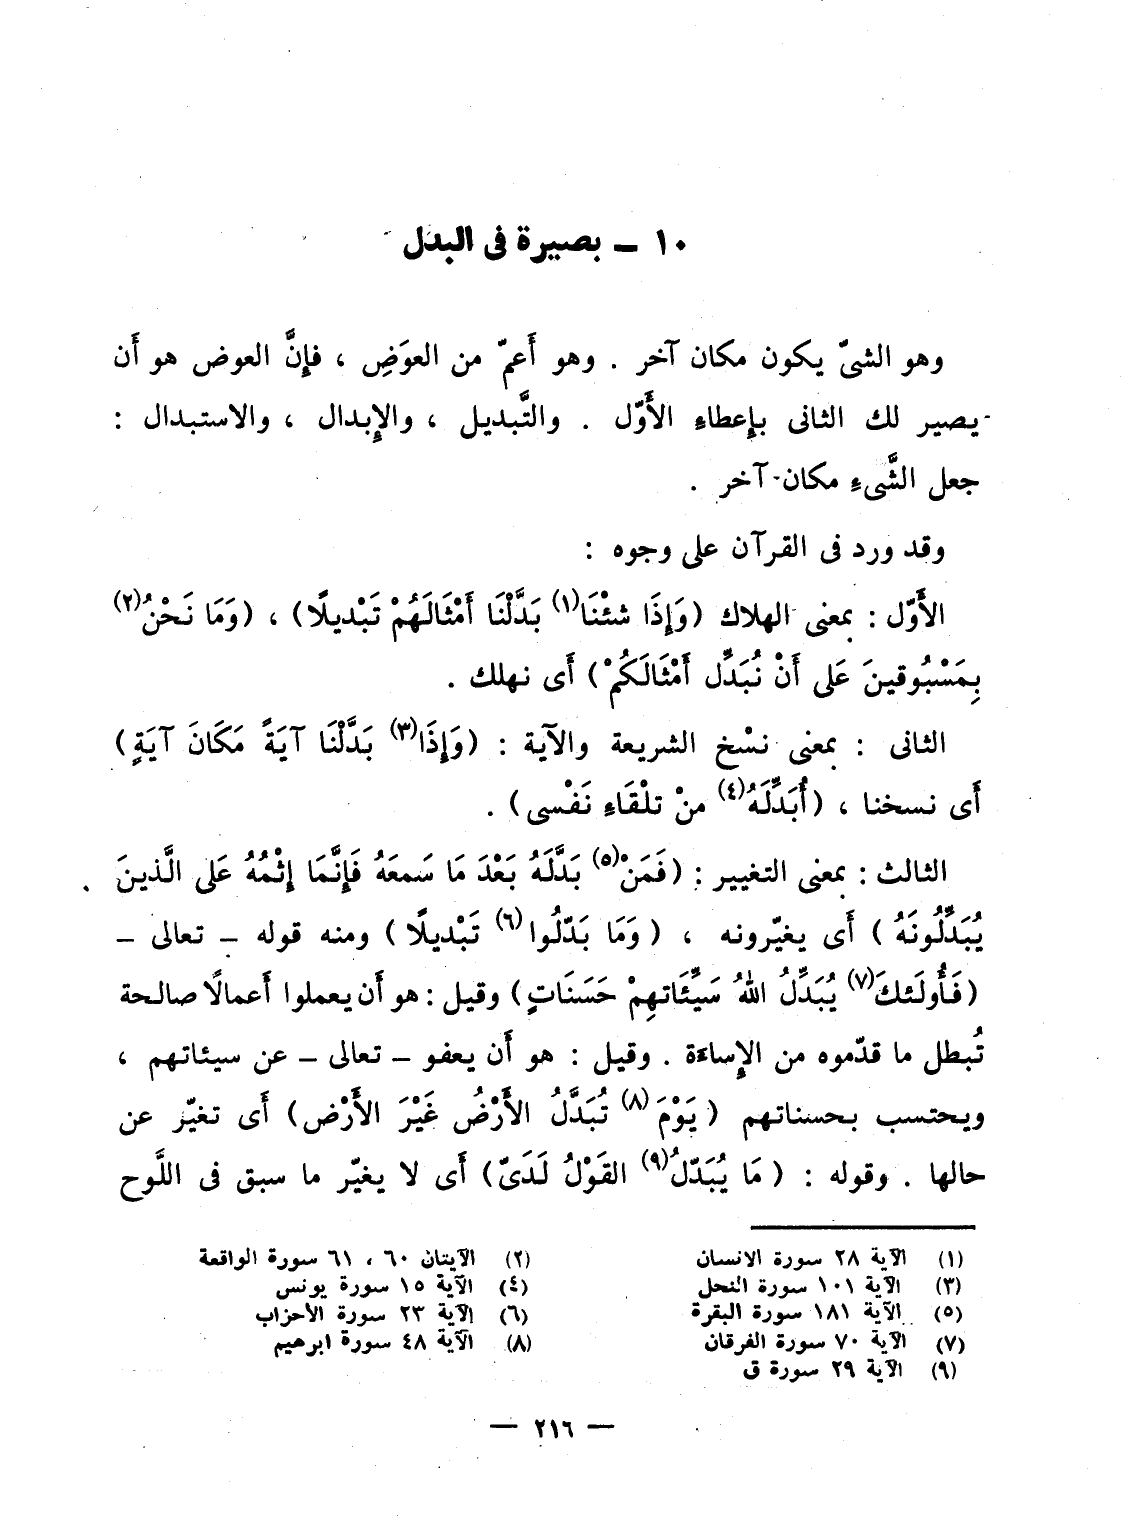 ١٠ – بصيرة فى البدل
وهو الشىّ يكون مكان آخر . وهو أَعمّ من العوَضِ ، فإِنَّ العوض هو أَن
يصير لك الثانى بإِعطاءِ الأَوّل . والتَّبديل ، والإِبدال ، والاستبدال :
جعل الشَّىءِ مكان آخر .
وقد ورد فى القرآن على وجوه :
الأَوّل : بمعنى الهلاك (وَإِذَا شئْنَا(١) بَدَّلْنَا أَمْثَالَهُمْ تَبْديلًا) ، (وَمَا نَحْنُ(٢)
بِمَسْبُوقينَ عَلى أَنْ نُبَدِّل أَمْثَالَكُمْ) أَى نهلك .
الثانى : بمعنى نسْخ الشريعة والآية : (وَإِذَا(٣) بَدَّلْنَا آيَةً مَكَانَ آيَةٍ)
أَى نسخنا ، (أُبَدِّلَهُ(٤) منْ تلْقَاءِ نَفْسى) .
الثالث : بمعنى التغيير : (فَمَنْ(٥) بَدَّلَهُ بَعْدَ مَا سَمعَهُ فَإِنَّمَا إِثْمُهُ عَلى الَّذينَ
يُبَدِّلُونَهُ) أَى يغيّرونه ، (وَمَا بَدّلُوا(٦) تَبْديلًا) ومنه قوله – تعالى –
(فَأُولَئكَ(٧) يُبَدِّلُ اللهُ سَيِّئَاتهِمْ حَسَنَاتٍ) وقيل : هو أَن يعملوا أَعمالًا صالحة
تُبطل ما قدّموه من الإِساءَة . وقيل : هو أَن يعفو – تعالى – عن سيئاتهم ،
ويحتسب بحسناتهم (يَوْمَ(٨) تُبَدَّلُ الأَرْضُ غَيْرَ الأَرْض) أَى تغيّر عن
حالها . وقوله : (مَا يُبَدّلُ(٩) القَوْلُ لَدَىّ) أَى لا يغيّر ما سبق فى اللَّوح
(١) الآية ٢٨ سورة الانسان (٢) الآيتان ٦٠ ، ٦١ سورة الواقعة
(٣) الآية ١٠١ سورة النحل (٤) الآية ١٥ سورة يونس
(٥) الآية ١٨١ سورة البقرة (٦) الآية ٢٣ سورة الأحزاب
(٧) الآية ٧٠ سورة الفرقان (٨) الآية ٤٨ سورة ابرهيم
(٩) الآية ٢٩ سورة ق
— ٢١٦ —